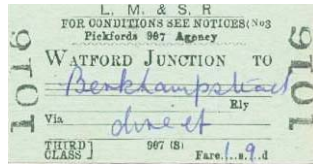 L. M. & S. R
FOR CONDITIONS SEE NOTICES(No3
Pickfords 967 Agency
WATFORD JUNCTION TO
Berkhampstead
Rly
Via direct
THIRD] 967 (S)
CLASS] Fare 1s. 9d
1016
1016